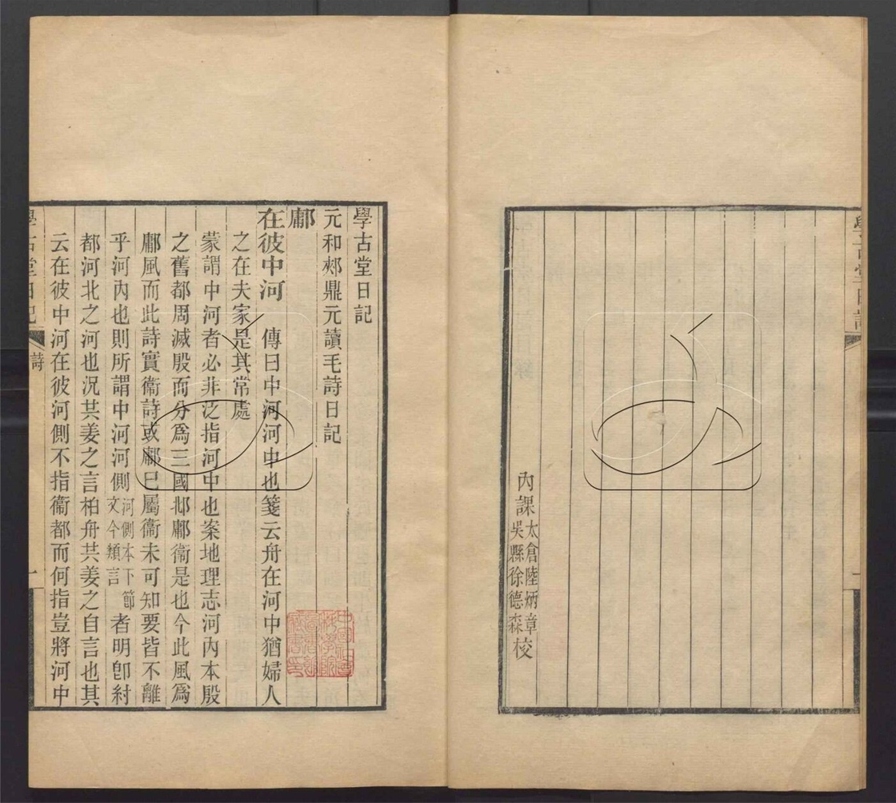 內課太倉陸炳章
吳縣徐德森校
學古堂日記
元和郟鼎元讀毛詩日記
鄘
在彼中河　傳曰中河河中也箋云舟在河中猶婦人
之在夫家是其常處
蒙謂中河者必非泛指河中也案地理志河內本殷
之舊都周滅殷而分爲三國邶鄘衞是也今此風爲
鄘風而此詩實衞詩或鄘已屬衞未可知要皆不離
乎河內也則所謂中河河側河側本下節文今類言者明卽紂
都河北之河也況共姜之言柏舟共姜之自言也其
云在彼中河在彼河側不指衞都而何指豈將河中
學古堂日記　詩　一